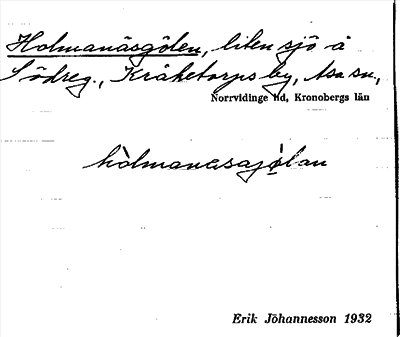 Holmanäsgölen, liten sjö å
Södreg., Kråketorps by, Asa sn,
Norrvidinge hd, Kronobergs län
hòlmanɛsajølan
Erik Johannesson 1932